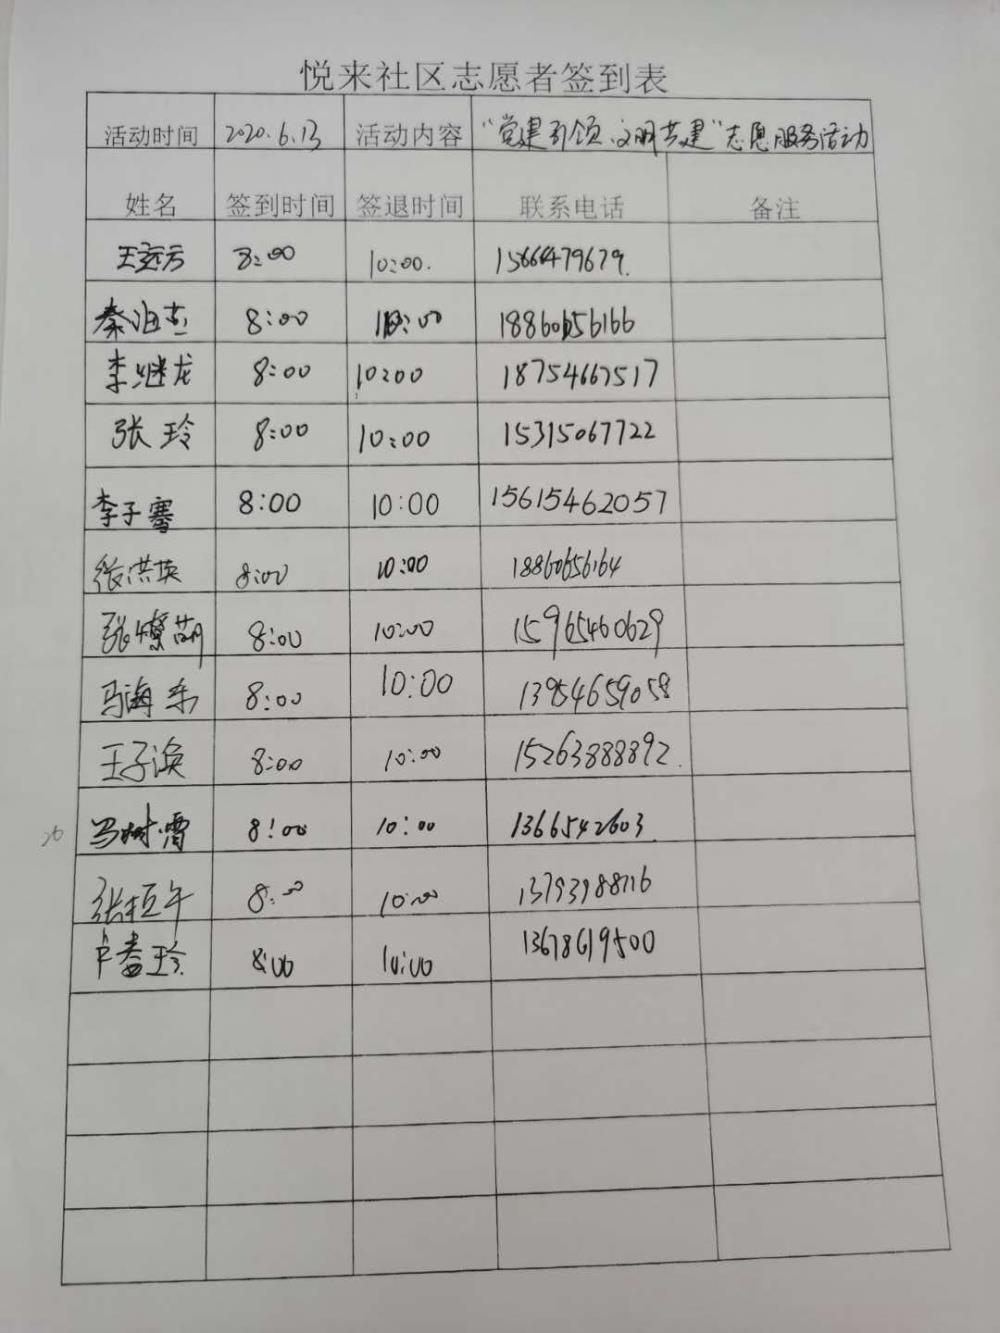 悦来社区志愿者签到表
活动时间 2020.6.13 活动内容 "党建引领、文明共建"志愿服务活动
姓名 签到时间 签退时间 联系电话 备注
王志方 8:00 10:00. 15666479679.
秦油 8:00 10:00 18860656166
李继龙 8:00 10:00 18754667517
张玲 8:00 10:00 15315067722
李子骞 8:00 10:00 15615462057
张洪英 8:00 10:00 18860656164
张 8:00 10:00 15965460629
马海东 8:00 10:00 13954659058
王子涣 8:00 10:00 15263888892.
马树霄 8:00 10:00 1366542603.
张恒午 8:00 10:00 13793988116
卢春玲 8:00 10:00 13678619500